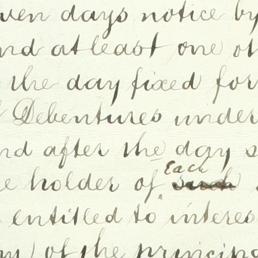 ven days notice by
nd at least one ot
the day fixed for
Debentures under
nd after the day s
e holder of Each such
entitled to interes
of the principa